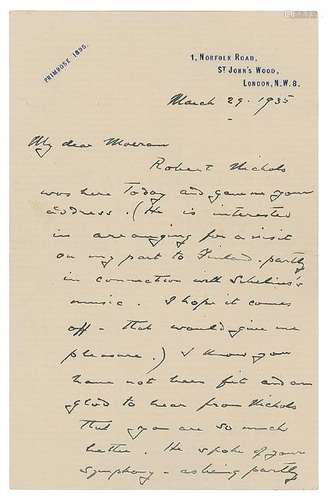 PRIMROSE 1890.
1, NORFOLK ROAD,
ST JOHN'S WOOD,
LONDON, N.W.8.
March 29. 1935
My dear Moeran
Robert Nichols
was here today and gave me your
address. (He is interested
in arranging for a visit
on my part to Finland - partly
in connection with Sibelius's
music. I hope it comes
off - that would give me
pleasure.) I know you
have not been fit and am
glad to hear from Nichols
that you are so much
better. He spoke of your
Symphony - asking partly